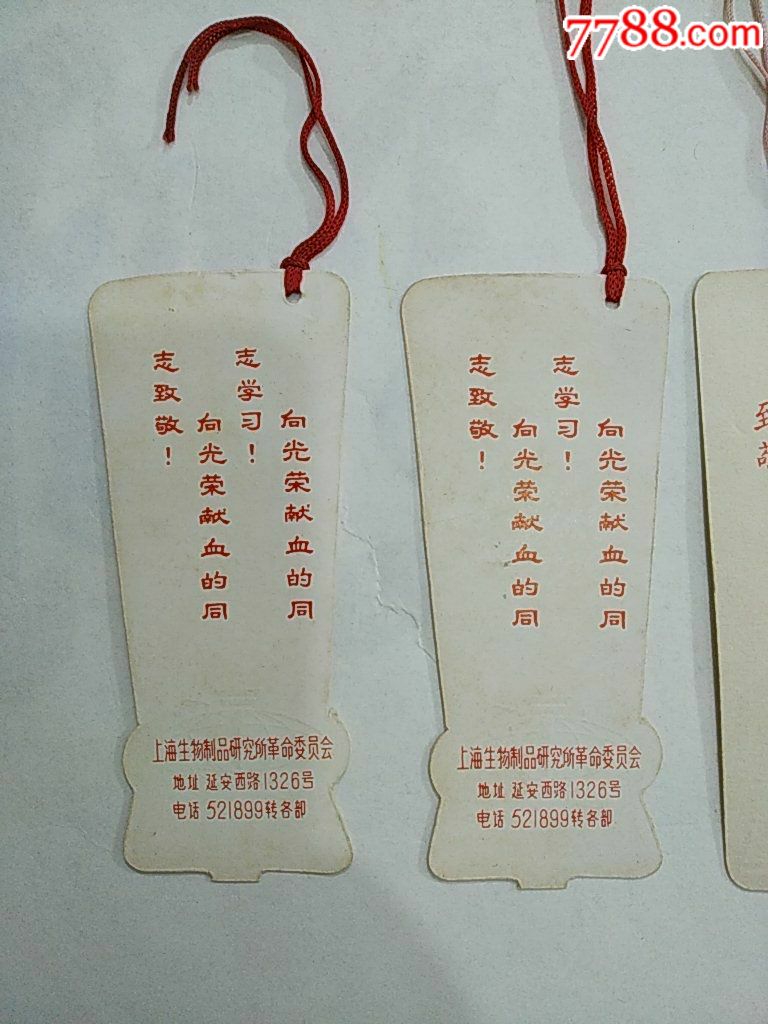 7788.com
向光荣献血的同
志学习！
向光荣献血的同
志致敬！
上海生物制品研究所革命委员会
地址 延安西路1326号
电话 521899转各部
向光荣献血的同
志学习！
向光荣献血的同
志致敬！
上海生物制品研究所革命委员会
地址 延安西路1326号
电话 521899转各部